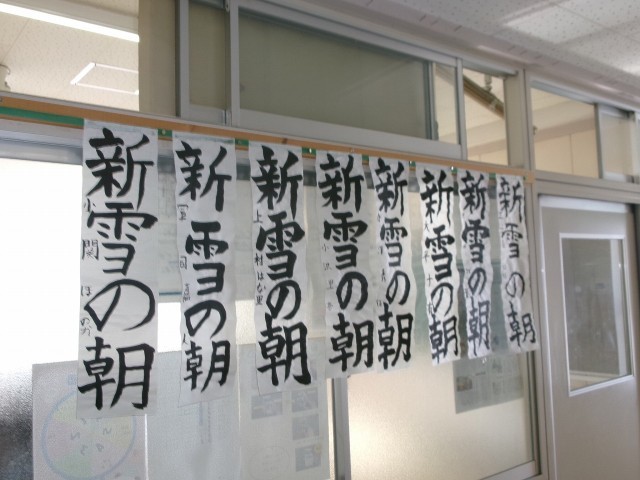 新雪の朝
小関ほのか
新雪の朝
新雪の朝
上村はな里
新雪の朝
新雪の朝
新雪の朝
新雪の朝
新雪の朝